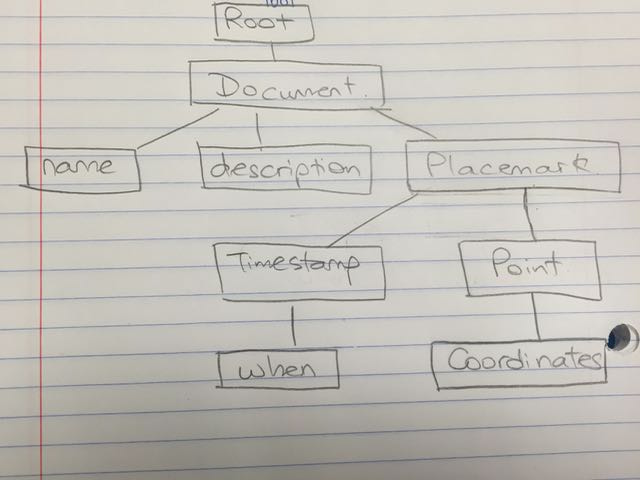 Root
Document.
name
description
Placemark
Timestamp
Point
when
Coordinates